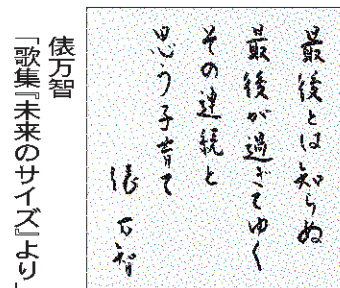 最後とは知らぬ
最後が過ぎてゆく
その連続と
思う子育て
俵万智
俵万智
「歌集『未来のサイズ』より」